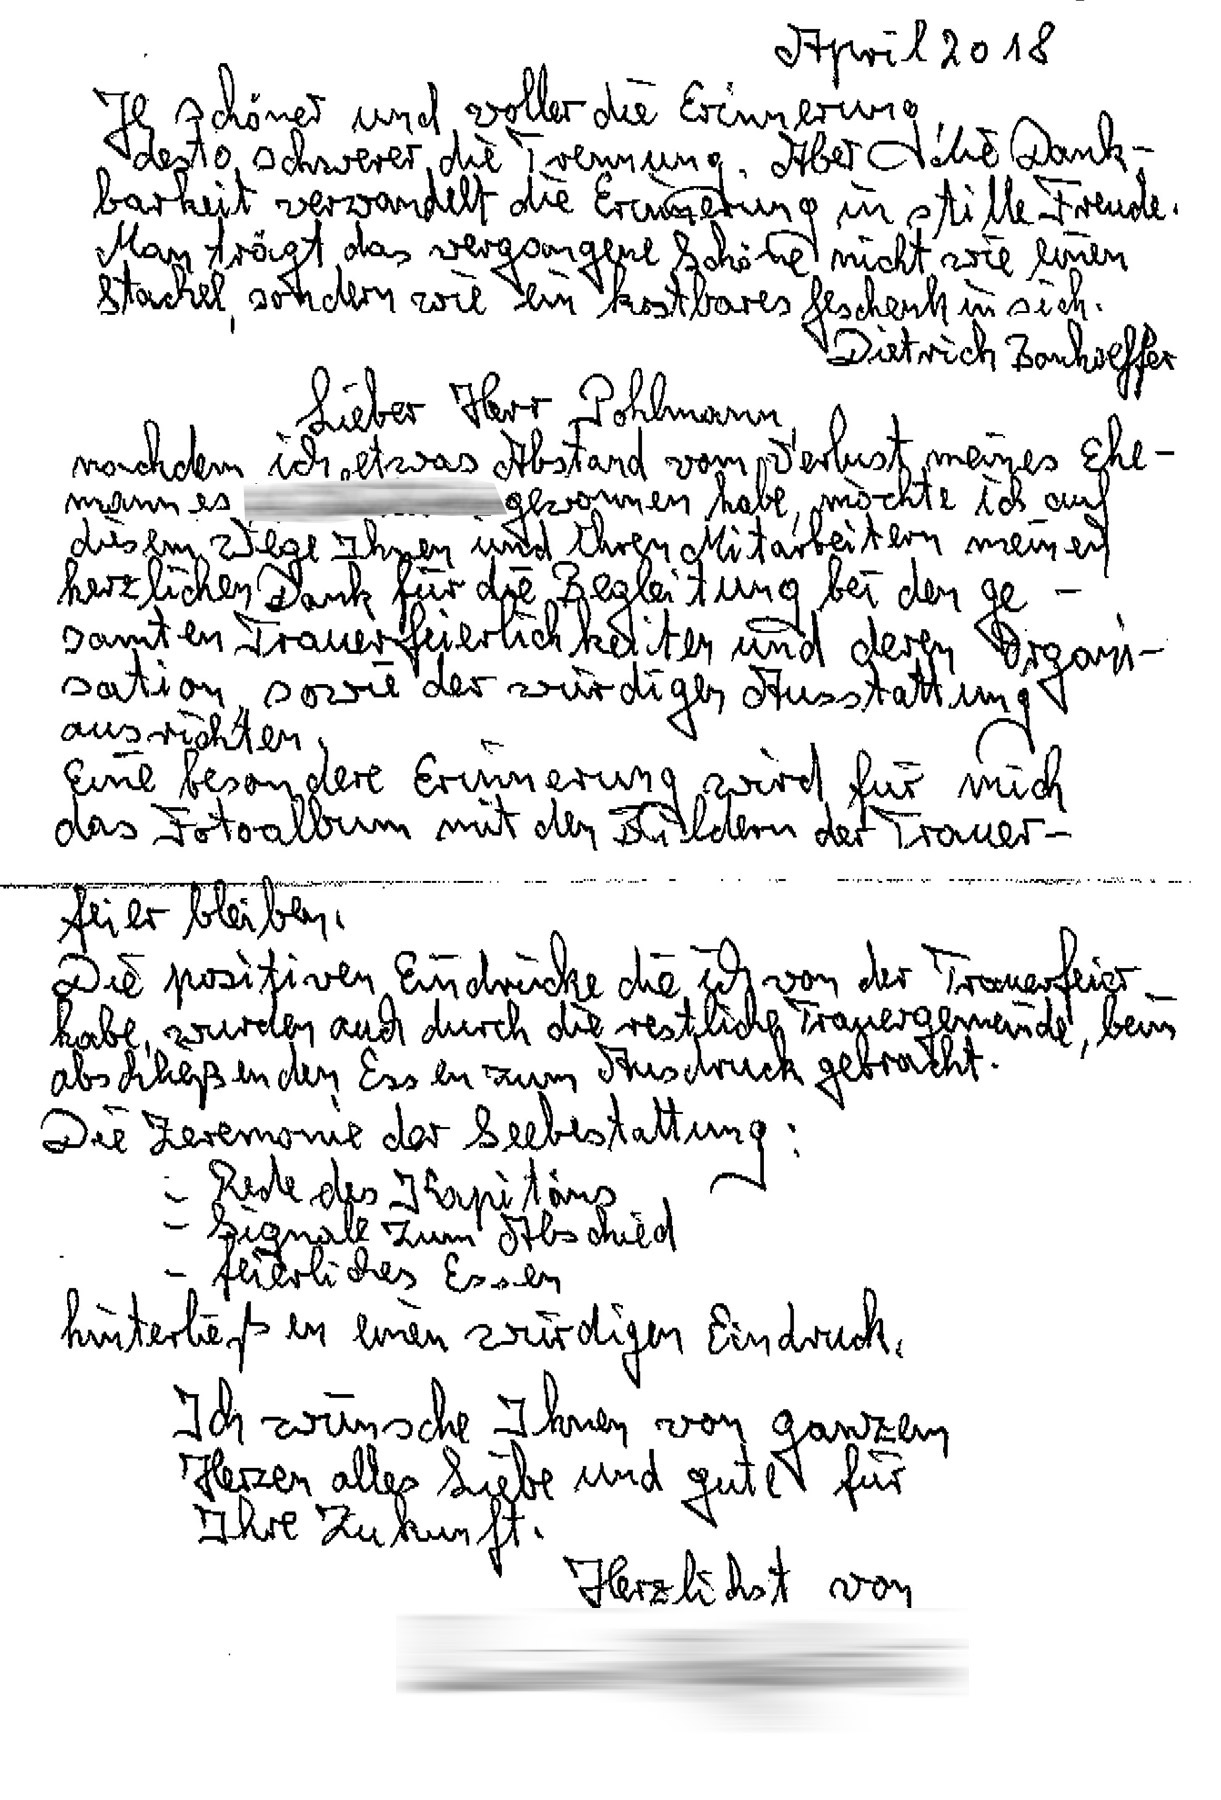 April 2018
Je schöner und voller die Erinnerung,
desto schwerer die Trennung. Aber die Dank-
barkeit verwandelt die Erinnerung in stille Freude.
Man trägt das vergangene Schöne nicht wie einen
Stachel, sondern wie ein kostbares Geschenk in sich.
Dietrich Bonhoeffer
Lieber Herr Pohlmann,
nachdem ich etwas Abstand vom Verlust meines Ehe-
mannes gewonnen habe, möchte ich auf
diesem Wege Ihnen und Ihren Mitarbeitern meinen
herzlichen Dank für die Begleitung bei den ge-
samten Trauerfeierlichkeiten und deren Organi-
sation, sowie der würdigen Ausstattung
ausrichten.
Eine besondere Erinnerung wird für mich
das Fotoalbum mit den Bildern der Trauer-
feier bleiben.
Die positiven Eindrücke die ich von der Trauerfeier
habe, wurden auch durch die restliche Trauergemeinde, beim
abschließenden Essen zum Ausdruck gebracht.
Die Zeremonie der Seebestattung:
- Rede des Kapitäns
- Signale zum Abschied
- feierliches Essen
hinterließen einen würdigen Eindruck.
Ich wünsche Ihnen von ganzem
Herzen alles Liebe und gute für
Ihre Zukunft.
Herzlichst von